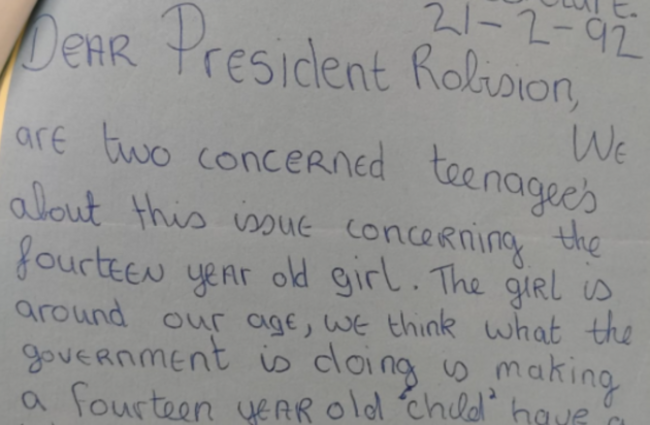 21-2-92
DEAR President Robision,
WE
are two concerned teenagee's
about this issue concerning the
fourteen year old girl. The girl is
around our age, we think what the
government is doing is making
a fourteen year old 'child' have a